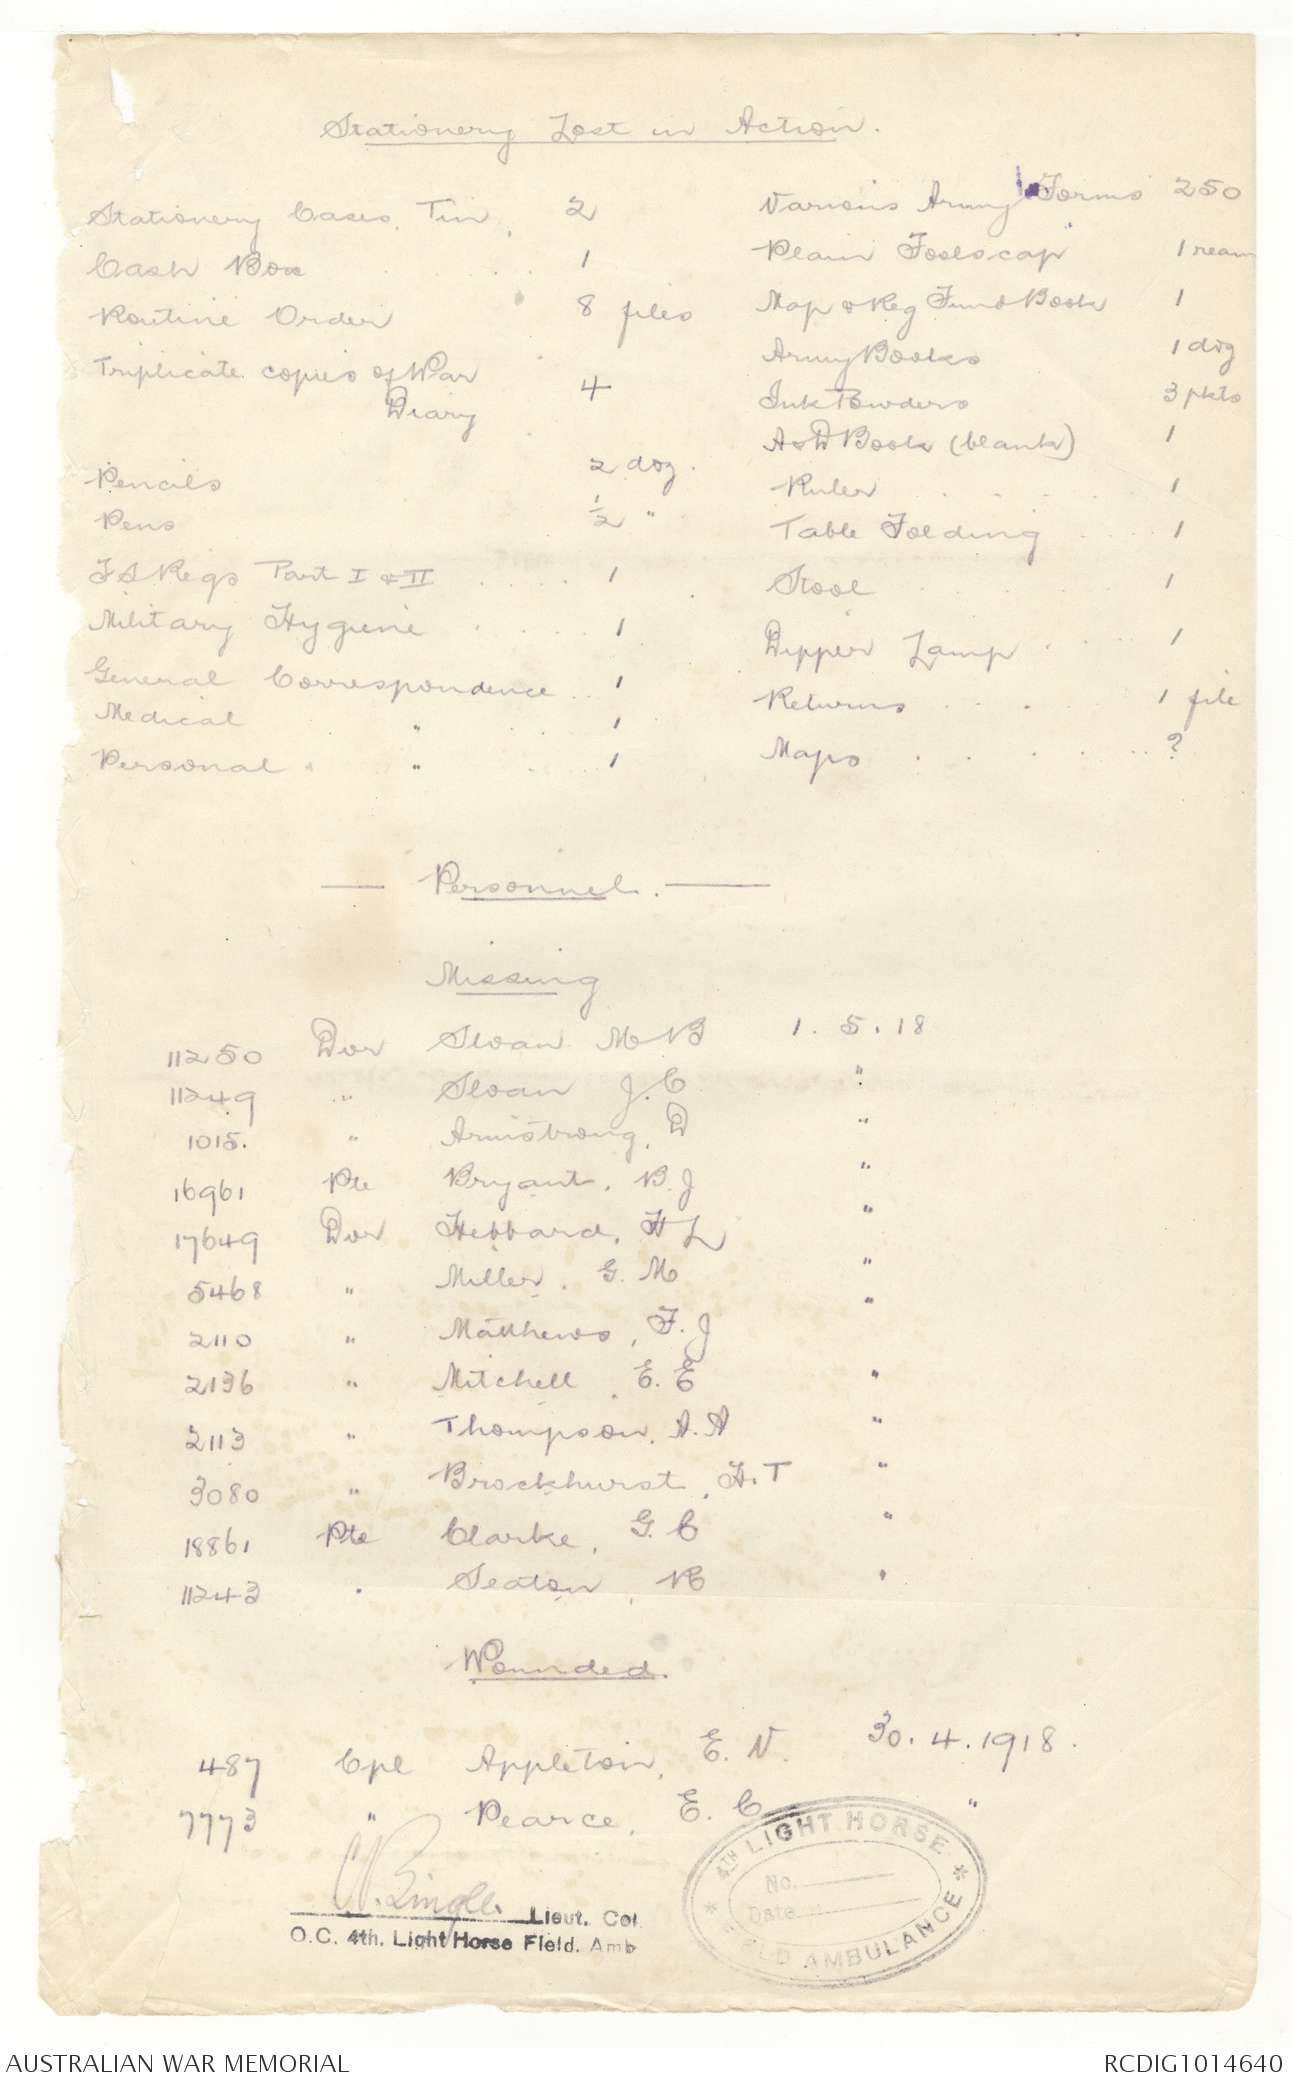 Stationery Lost in Action.
Stationery Cases, Tin, 2
Cash Box 1
Routine Order 8 files
Triplicate copies of War
Diary 4
Pencils 2 doz.
Pens ½ "
F S Regs Part I & II 1
Military Hygiene 1
General Correspondence 1
Medical " 1
Personal " 1
Various Army Forms 250
Plain Foolscap 1 ream
Map & Reg Fund Book 1
Army Books 1 doz
Ink Powders 3 pkts
A & D Book (blank) 1
Ruler 1
Table Folding 1
Stool 1
Dipper Lamp 1
Returns 1 file
Maps ?
— Personnel. —
Missing
11250 Dvr Sloan M B 1.5.18
11249 " Sloan J.C. "
1015. " Armstrong, D "
16961 Pte Bryant, B.J "
17649 Dvr Hebbard, H L "
5468 " Miller, G. M "
2110 " Matthews, F. J "
2136 " Mitchell, E. E "
2113 " Thompson, A. A "
3080 " Brockhurst, H. T "
18861 Pte Clarke, G. C "
11243 " Seaton, R "
Wounded.
487 Cpl Appleton, E. V. 30.4.1918.
7773 " Pearce, E. C "
Lieut. Col.
O.C. 4th. Light Horse Field. Amb
* 4TH LIGHT HORSE *
No.
Date
FIELD AMBULANCE
AUSTRALIAN WAR MEMORIAL
RCDIG1014640